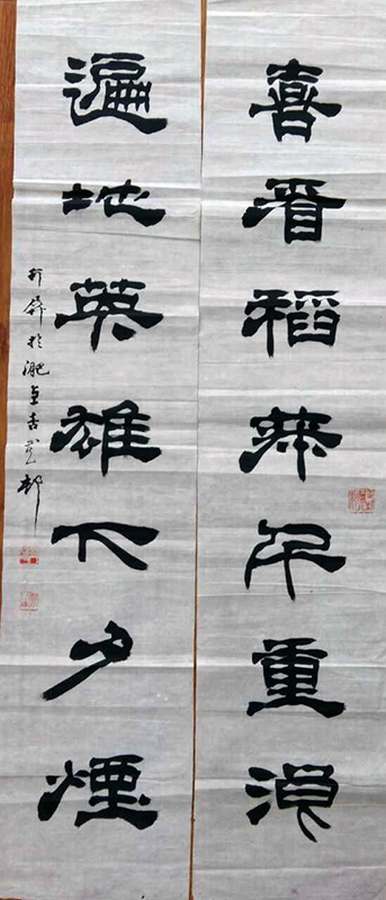 喜看稻菽千重浪
遍地英雄下夕煙
於淝